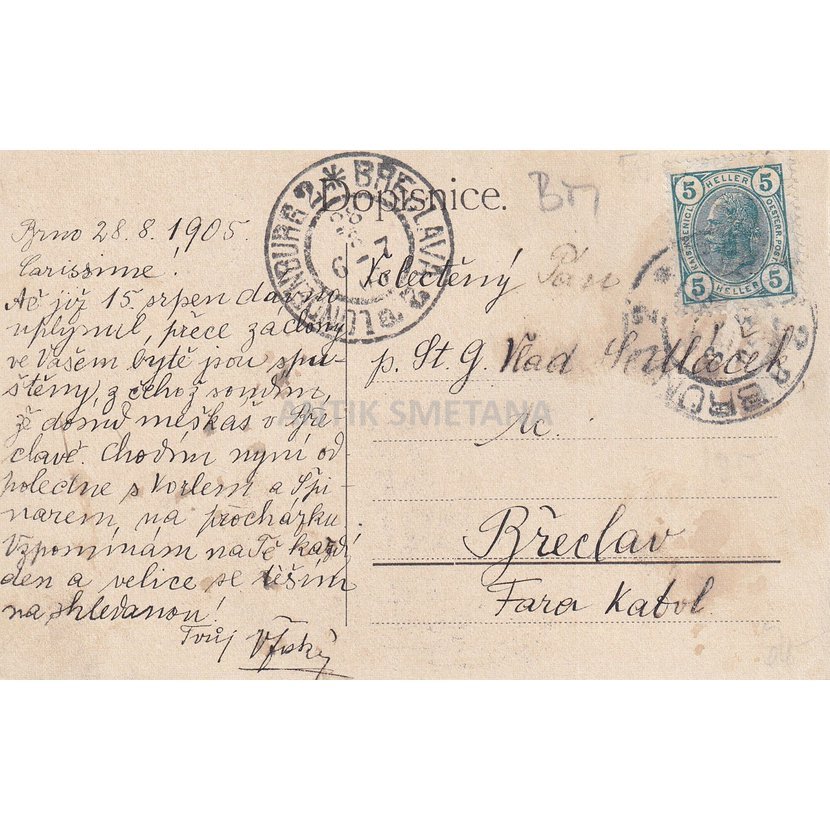 Dopisnice.
BŘECLAVA 2 * LUNDENBURG 2 *
BM
5 HELLER 5
KAIS. KÖNIGL.
OESTERR. POST.
5 HELLER 5
BRÜNN
Brno 28. 8. 1905.
Carissime!
Ač již 15. srpen dávno
uplynul, přece záclony
ve Vašem bytě jsou spu-
štěny, z čehož soudím,
že domů meškáš v Bře-
clavě Chodím nyní od
poledne s Vorlem a Špi-
narem, na procházku.
Vzpomínám na Tě každý
den a velice se těším
na shledanou!
Tvůj
Velectěný Pán
p. St. G. Vlad Sedláček
Břeclav
Fara Katol
ANTIK SMETANA